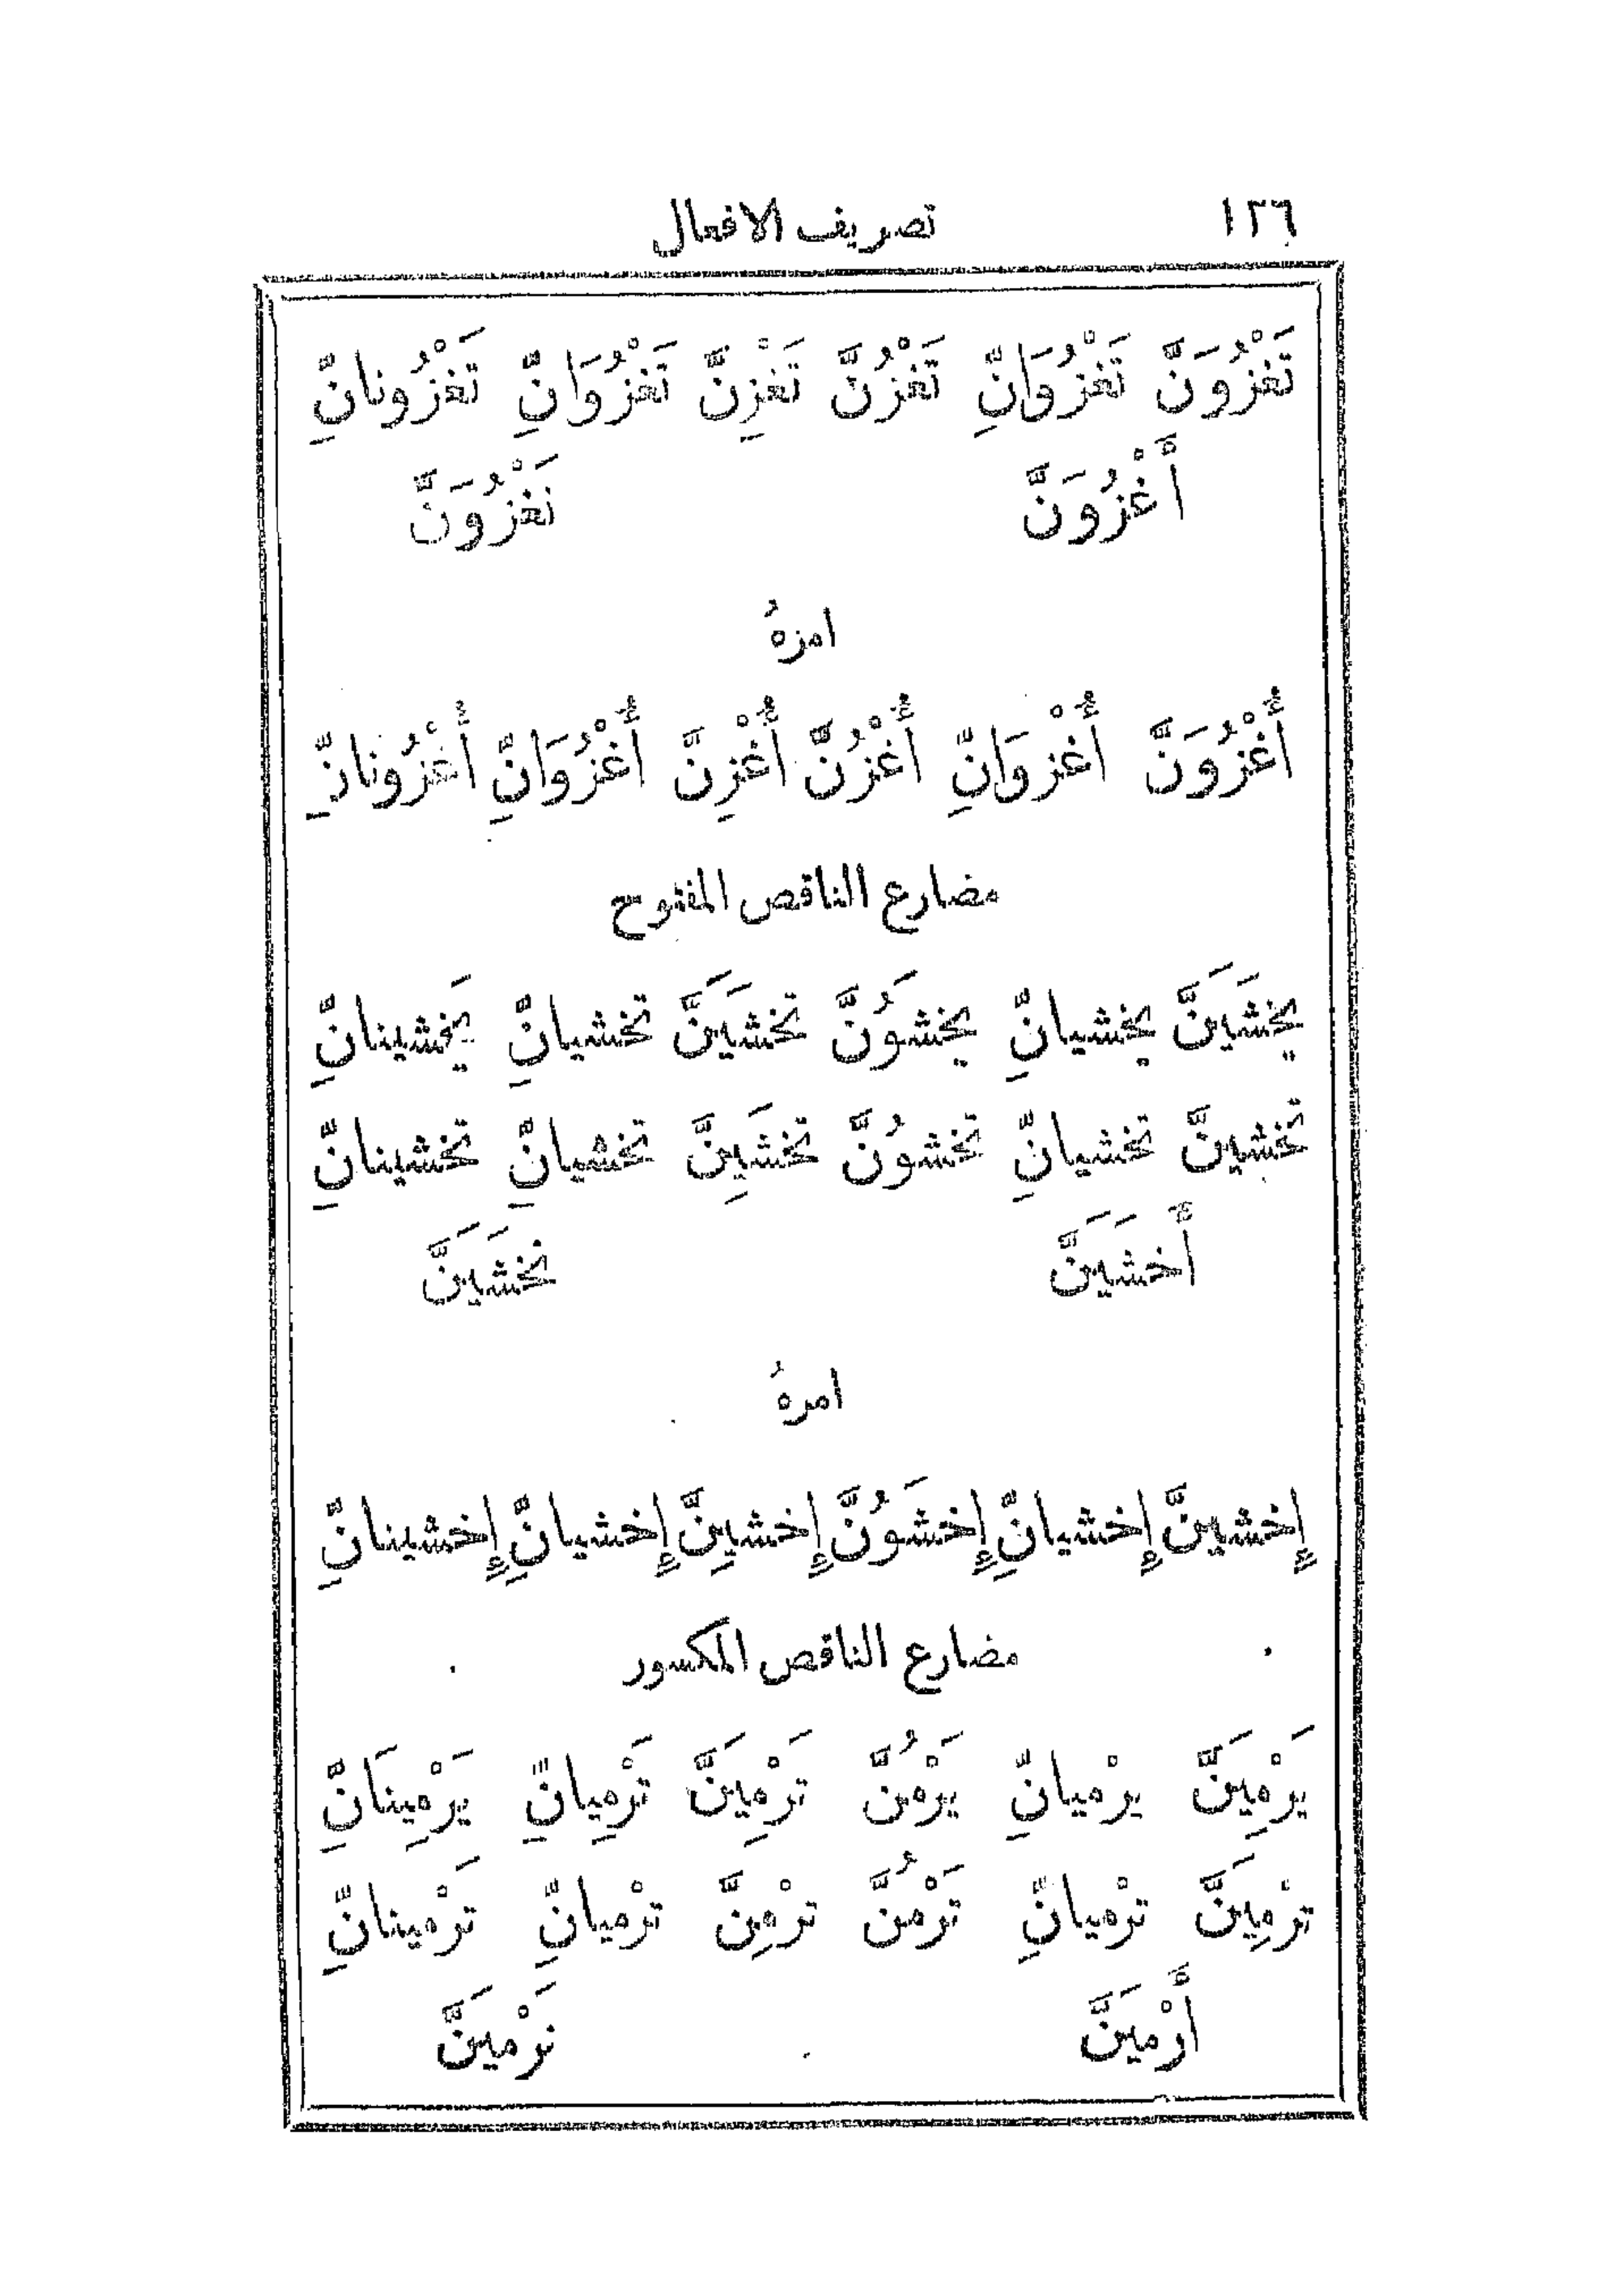 ١٢٦ تصريف الافعال
تَغْزُوَنَّ تَغْزُوَانِّ تَغْزُنَّ تَغْزِنَّ تَغْزُوَانِّ تَغْزُونانِّ
أَغْزُوَنَّ نَغْزُوَنَّ
امرهُ
أُغْزُوَنَّ أُغْزوَانِّ أُغْزُنَّ أُغْزِنَّ أُغْزُوَانِّ أُغْزُونانِّ
مضارع الناقص المفتوح
يخشَيَنَّ يخشيانِّ يخشَوُنَّ تخشَيَنَّ تخشيانِّ يَخشينانِّ
تخشينَّ تخشيانِّ تخشوُنَّ تخشَيِنَّ تخشيانِّ تخشينانِّ
أَخشَيَنَّ نخشَيَنَّ
امرهُ
إِخشينَّ إِخشيانِّ إِخشَوُنَّ إِخشيِنَّ إِخشيانِّ إِخشينانِّ
مضارع الناقص المكسور
يَرْمِيَنَّ يرْميانِّ يَرْمُنَّ تَرْمِيَنَّ تَرْمِيانِّ يَرْمِينَانِّ
ترْمِيَنَّ ترْميانِّ تَرْمُنَّ ترْمِنَّ ترْميانِّ تَرْمينانِّ
أَرْميَنَّ نَرْميَنَّ